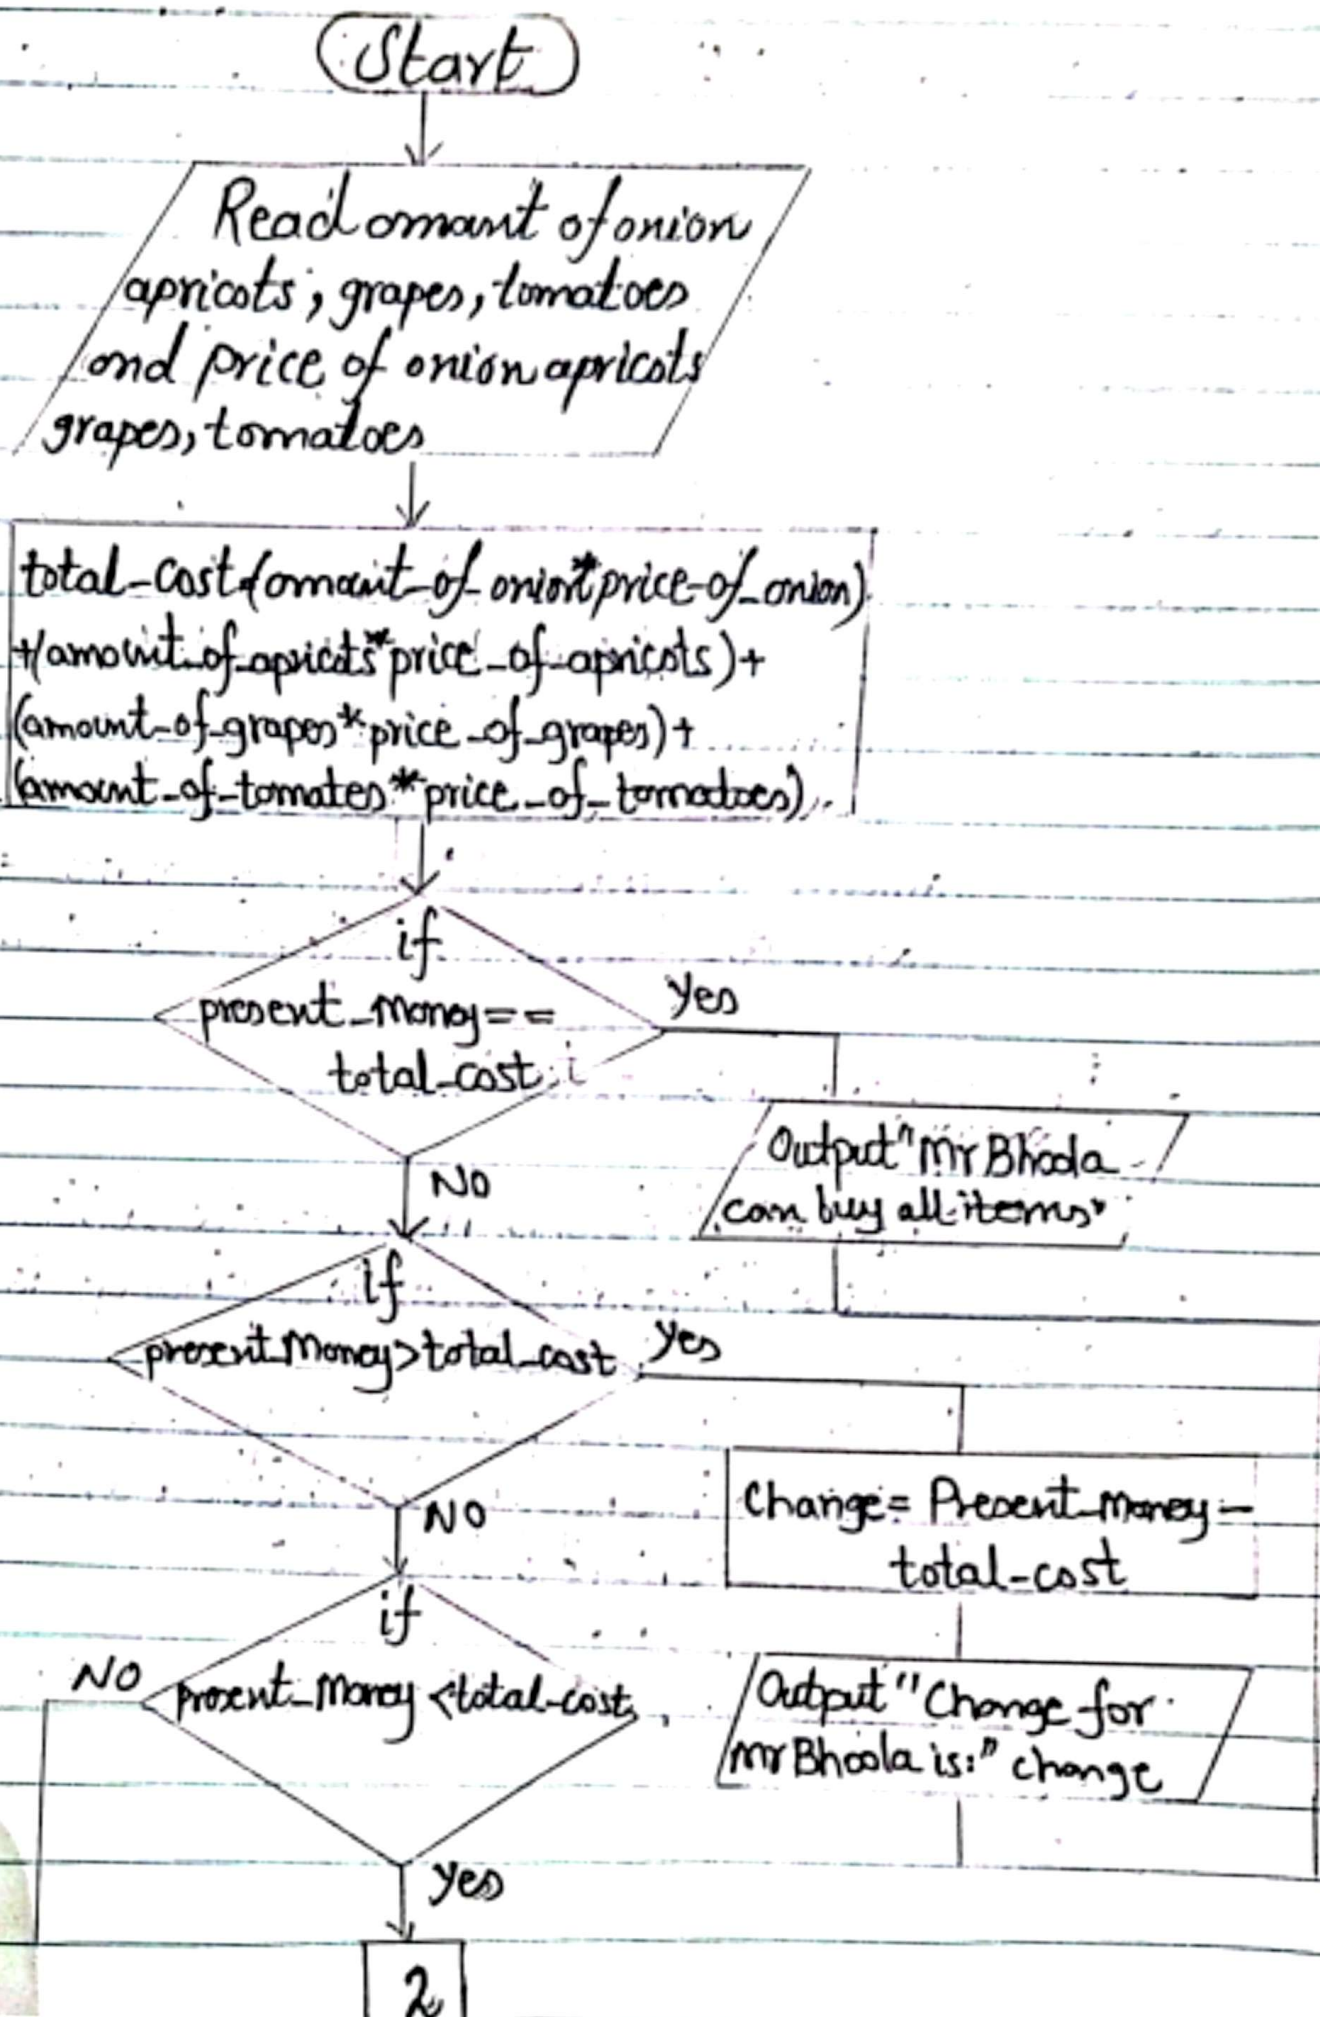 Start
Read amount of onion
apricots, grapes, tomatoes
and price of onion apricots
grapes, tomatoes
total_cost=(amount_of_onion*price_of_onion)
+(amount_of_apricots*price_of_apricots)+
(amount_of_grapes*price_of_grapes)+
(amount_of_tomates*price_of_tomatoes)
if
present_money==
total_cost
Yes
Output "Mr Bhoola
can buy all items"
NO
if
present_Money>total_cost
Yes
Change= Present_money-
total_cost
NO
if
present_money <total_cost
NO
Output "Change for
mr Bhoola is:" change
Yes
2